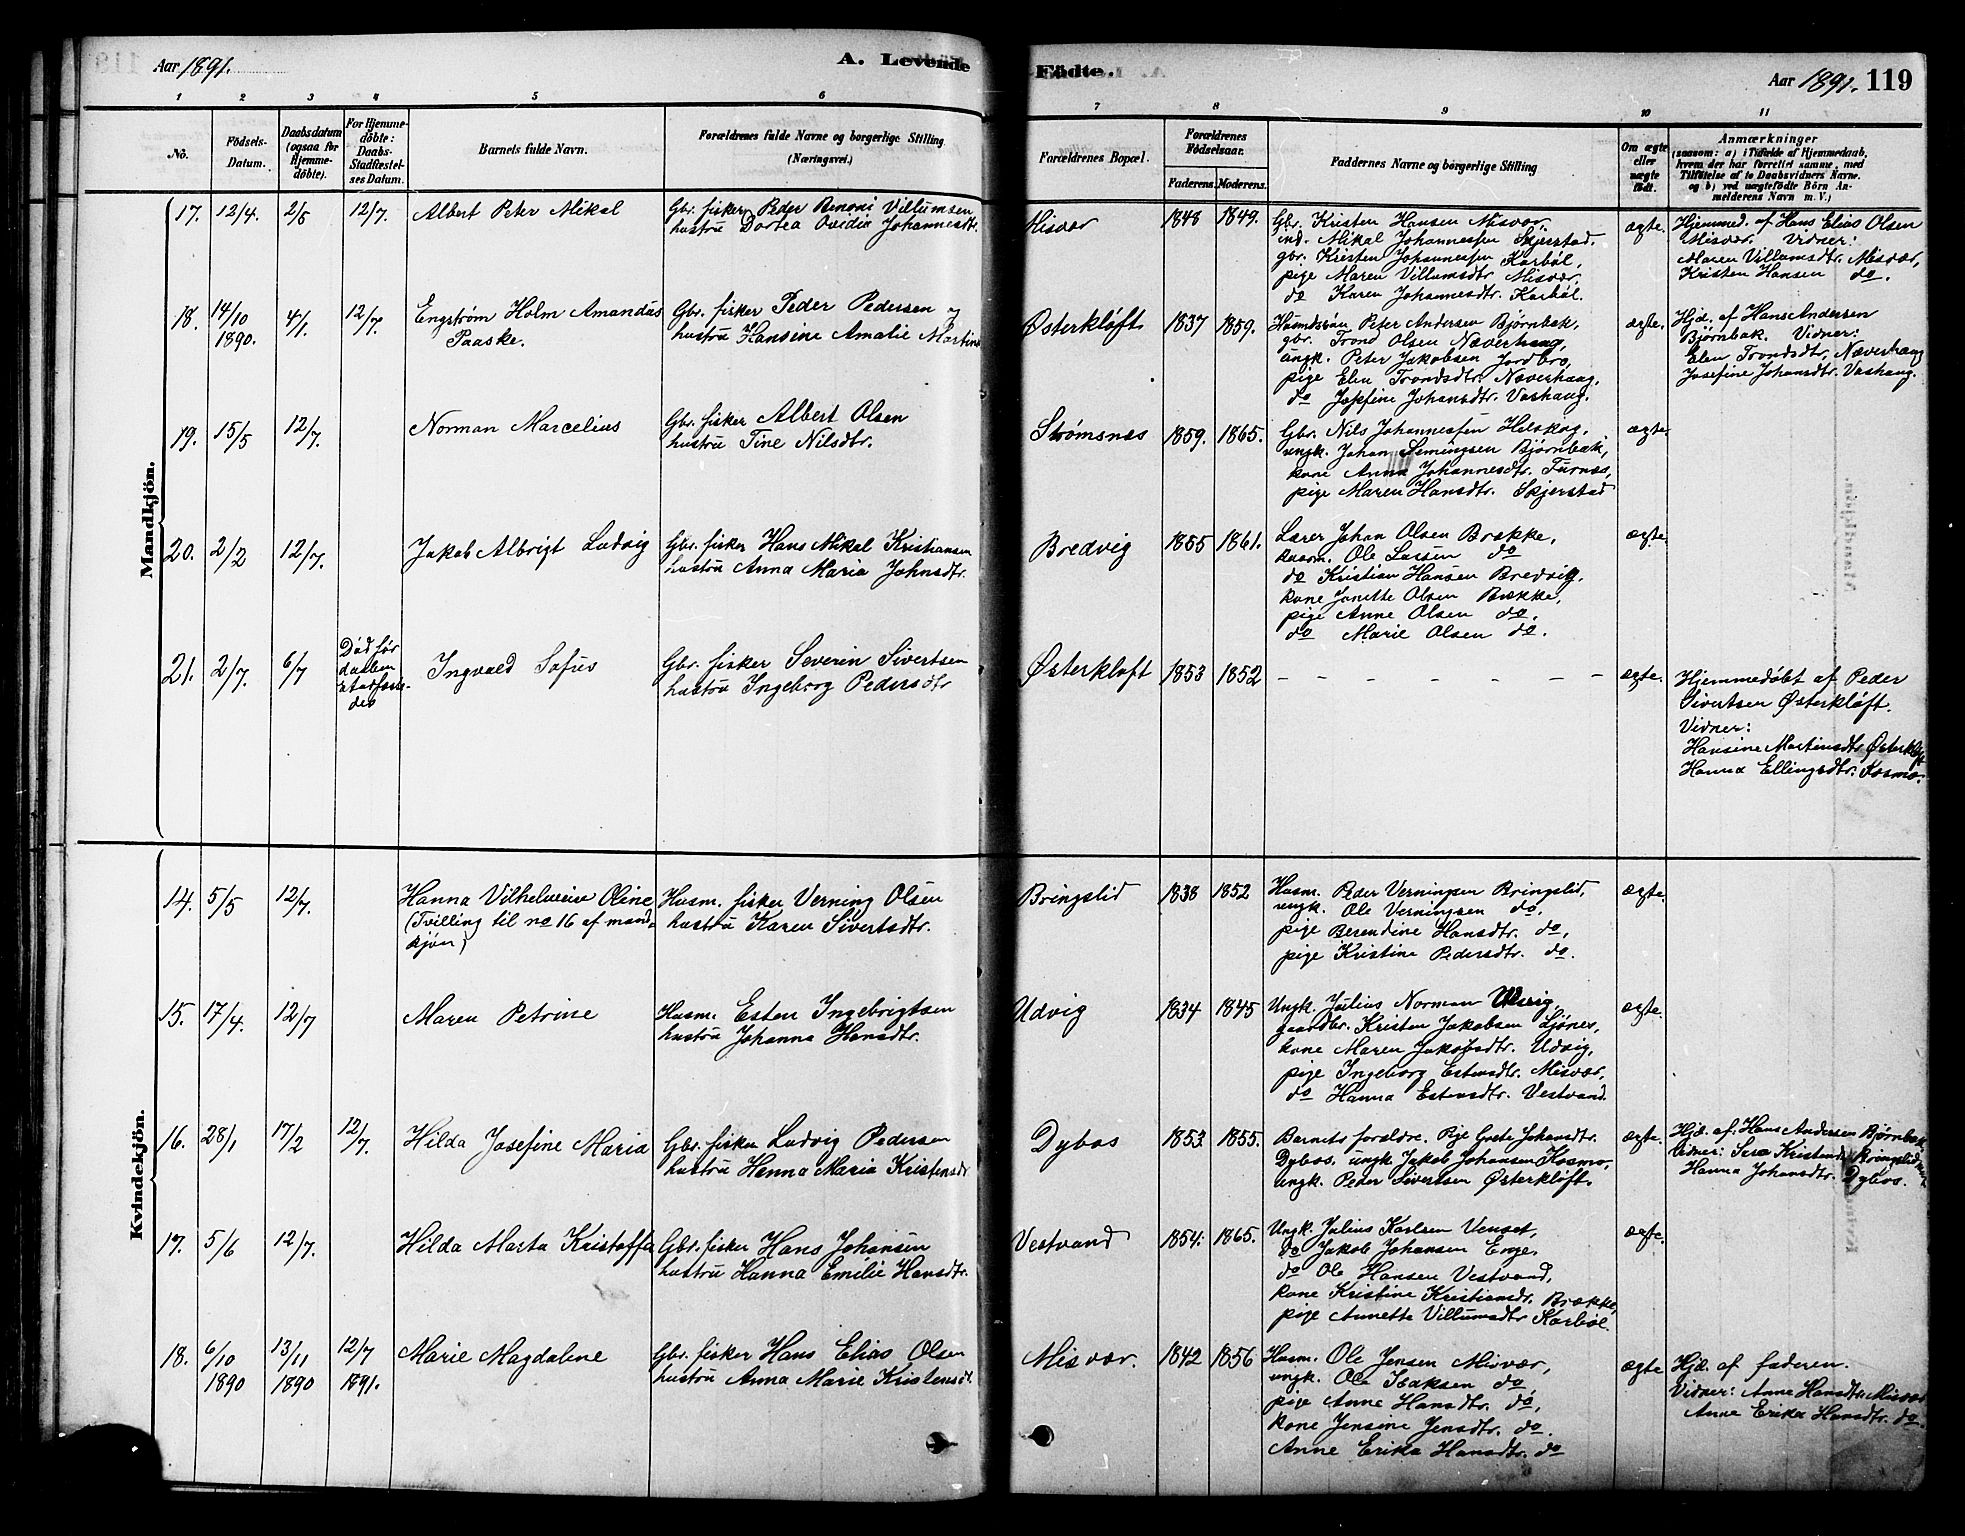 Aar 1891.
A. Levende Födte.
Aar 1891. 119
1 2 3 4 5 6 7 8 9 10 11
No.
Födsels-Datum.
Daabsdatum (ogsaa for Hjemme-döbte).
For Hjemme-döbte: Daabs-Stadfæstel-ses Datum.
Barnets fulde Navn.
Forældrenes fulde Navne og borgerlige Stilling (Næringsvei.)
Forældrenes Bopæl.
Forældrenes Födselsaar.
Faderens. Moderens.
Faddernes Navne og borgerlige Stilling
Om ægte eller uægte födt.
Anmærkninger
(saasom: a) i Tilfælde af Hjemmedaab,
hvem der har forrettet samme, med
Tilföielse af to Daabsvidners Navne.
og b) ved uægtefödte Börn An-
melderens Navn m. V.)
Mandkjön.
17. 12/4. 2/5 12/7. Albert Peter Mikal
Gbr. fisker Peder Benoni Villumsen
hustru Dortea Ovidia Johannesdt.
Misvær 1848 1849.
Gbr. Kristen Hansen Misvær,
ind. Mikal Johannessen Skjerstad.
gbr. Kristen Johannessen Karbøl,
pige Maren Villumsdtr. Misvær,
do Karen Johannesdtr. Karbøl.
ægte.
Hjemmed. af Hans Elias Olsen
Misvær. Vidner:
Maren Villumsdtr. Misvær,
Kristen Hansen do.
18. 14/10 1890. 4/1. 12/7. Engstrøm Holm Amandus
Paaske.
Gbr. fisker Peder Pedersen og
hustru Hansine Amalie Martins
Østerkløft 1837 1859.
Husmdssøn Peter Andersen Bjørnbak,
gbr. Trond Olsen Næverhaug,
ungk. Peter Jakobsen Jordbro,
pige Elen Trondsdtr. Næverhaug,
do Josefine Johansdtr. Vashaug.
ægte.
Hjd. af Hans Andersen
Bjørnbak. Vidner:
Elen Trondsdtr. Næverhaug
Josefine Johansdtr. Vashaug.
19. 15/5 12/7. Norman Marcelius
Gbr. fisker Albert Olsen
hustru Tine Nilsdtr.
Strømsnes 1859. 1865.
Gbr. Nils Johannessen Hilskog,
ungk. Johan Semingsen Bjørnbak,
kone Anna Johannesdtr. Furnes,
pige Maren Hansdtr. Skjerstad
ægte.
20. 2/2 12/7. Jakob Albrigt Ludvig
Gbr. fisker Hans Mikal Kristiansen
hustru Anna Maria Johnsdtr.
Bredvig 1855 1861.
Lærer Johan Olsen Brække,
husm. Ole Lassen do
do Kristian Hansen Bredvig.
kone Janette Olsen Brække,
pige Anne Olsen do.
do Marie Olsen do.
ægte
21. 2/7. 6/7 Død før
daaben
stadfæste-
des
Ingvald Sofus
Gbr. fisker Severin Sivertsen
hustru Ingeborg Pedersdtr
Østerkløft 1853 1852 – – – – – – –
ægte.
Hjemmedøbt af Peder
Sivertsen Østerkløft.
Vidner:
Hansine Martinsdtr. Østerkløft
Hanna Ellingsdtr. Kosmo.
Kvindekjön.
14. 5/5 12/7. Hanna Vilhelmine Oline
(Tvilling til no 16 af mand-
kjøn)
Husm. fisker Verning Olsen
hustru Karen Sivertsdtr.
Bringslid 1838 1852
Husm. Peder Verningsen Bringslid,
ungk. Ole Verningsen do,
pige Berendine Hansdtr. do,
pige Kristine Pedersdtr. do.
ægte.
15. 17/4. 12/7 Maren Petrine
Husm. Esten Ingebrigtsen
hustru Johanna Hansdtr.
Udvig 1834 1845
Ungk. Julius Norman Udvig,
gaardbr. Kristen Jakobsen Ljønes,
kone Maren Jakobsdtr. Udvig,
pige Ingeborg Estensdtr. Misvær,
do Hanna Estensdtr. Vestvand.
ægte.
16. 28/1 17/2 12/7. Hilda Josefine Maria
Gbr. fisker Ludvig Pedersen
hustru Hanna Maria Kristensdt
Dybos 1853. 1855.
Barnets forældre. Pige Grete Johansdtr.
Dybos, ungk. Jakob Johansen Kosmo,
ungk. Peder Sivertsen Østerkløft.
ægte.
Hjd. af Hans Andersen Bjørnbak.
Vidner: Sara Kristensdtr. Bringslid
Hanna Johansdtr. Dybos.
17. 5/6 12/7. Hilda Marta Kristoffa
Gbr. fisker Hans Johansen
hustru Hanna Emilie Hansdtr.
Vestvand 1854. 1865.
Ungk. Julius Karlsen Venset,
do Jakob Johansen Enge,
do Ole Hansen Vestvand,
kone Kristine Kristiansdtr. Brække,
pige Annette Villumsdtr Karbøl.
ægte.
18. 6/10 1890 13/11 1890 12/7 1891. Marie Magdalene
Gbr. fisker Hans Elias Olsen
hustru Anna Marie Kristensdt.
Misvær. 1842 1856
Husm. Ole Jensen Misvær,
ungk. Ole Isaksen do,
pige Anne Hansdtr. do,
kone Jensine Jensdtr. do.
Anne Erika Hansdtr. do
ægte
Hjd. af faderen.
Vidner: Anne Hansdtr. Misvær
Anne Erika Hansdtr. do.